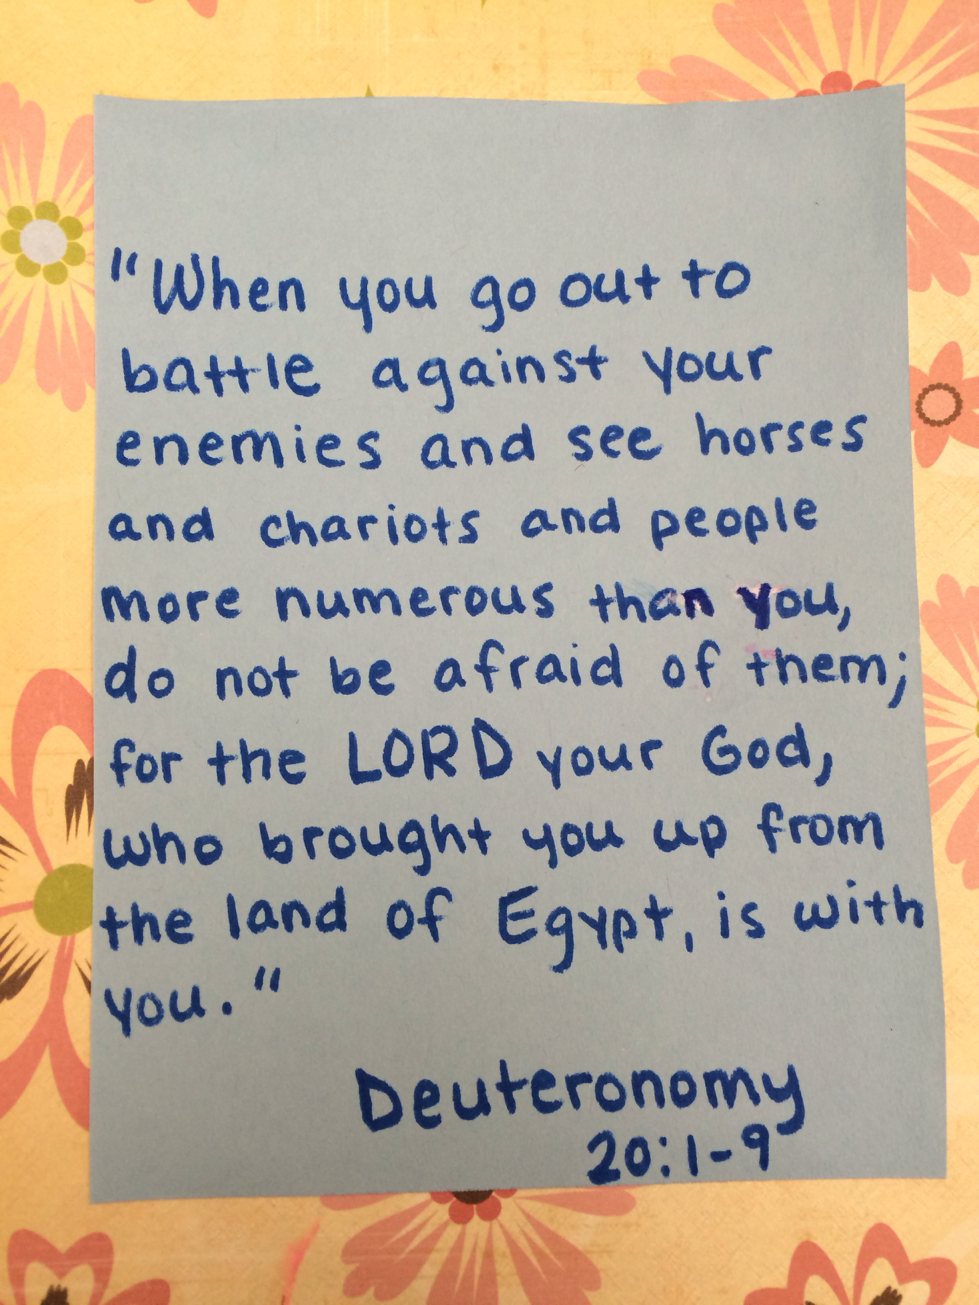 "When you go out to
battle against your
enemies and see horses
and chariots and people
more numerous than you,
do not be afraid of them;
for the LORD your God,
who brought you up from
the land of Egypt, is with
you."
Deuteronomy
20:1-9